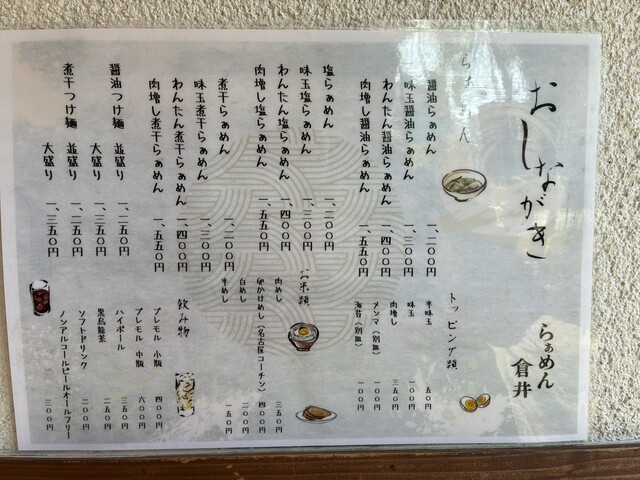 おしながき
らぁめん 倉井
らぁめん
醤油らぁめん 一、二〇〇円
味玉醤油らぁめん 一、三〇〇円
わんたん醤油らぁめん 一、四〇〇円
肉増し醤油らぁめん 一、五五〇円
塩らぁめん 一、二〇〇円
味玉塩らぁめん 一、三〇〇円
わんたん塩らぁめん 一、四〇〇円
肉増し塩らぁめん 一、五五〇円
煮干らぁめん 一、二〇〇円
味玉煮干らぁめん 一、三〇〇円
わんたん煮干らぁめん 一、四〇〇円
肉増し煮干らぁめん 一、五五〇円
醤油つけ麺 並盛り 一、二五〇円
大盛り 一、三五〇円
煮干つけ麺 並盛り 一、二五〇円
大盛り 一、三五〇円
トッピング類
半味玉 五〇円
味玉 一〇〇円
肉増し 三五〇円
メンマ(別皿) 一〇〇円
海苔(別皿) 一〇〇円
お米類
肉めし 三五〇円
卵かけめし(名古屋コーチン) 四〇〇円
白めし 二〇〇円
半めし 一五〇円
飲み物
プレモル 小瓶 四〇〇円
プレモル 中瓶 六〇〇円
ハイボール 三五〇円
黒烏龍茶 二五〇円
ソフトドリンク 二〇〇円
ノンアルコールビールオールフリー 三〇〇円